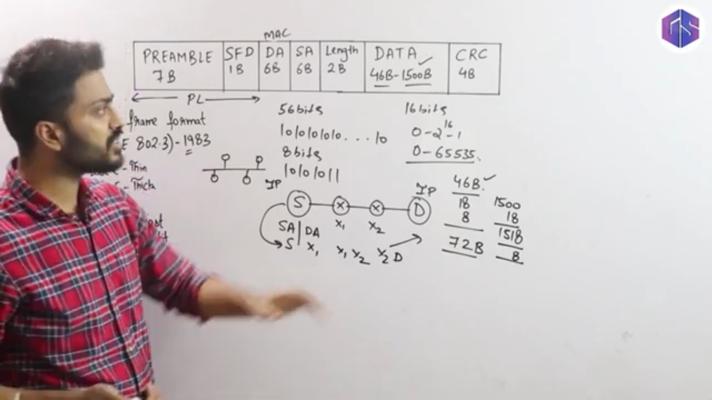 MAC
PREAMBLE SFD DA SA Length DATA CRC
7B 1B 6B 6B 2B 46B-1500B 4B
PL
frame format
802.3)-1983
Thin
Thick
56bits
10101010....10
8bits
10101011
16bits
0-2^16-1
0-65535
IP IP
S X X D
X1 X2
SA|DA
S X1 X1 X2 X2 D
46B
18
8
72B
1500
18
1518
8